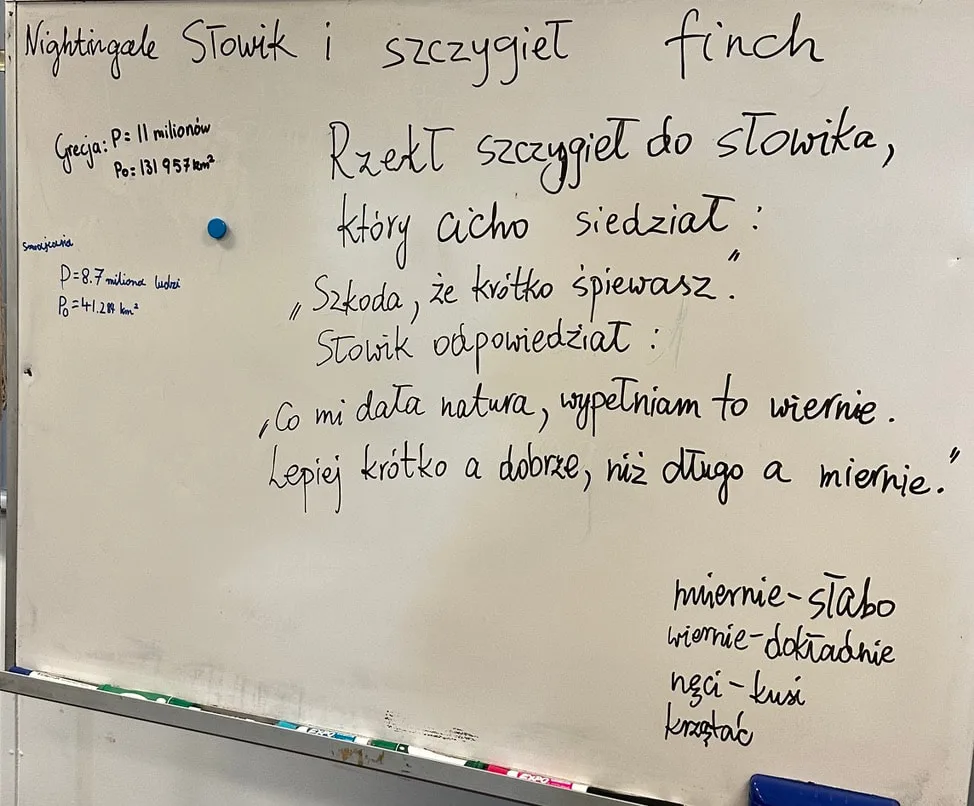 Nightingale Słowik i szczygieł finch
Grecja: P= 11 milionów
Po= 131 957 km²
P=8.7 miliona ludzi
Po=41.284 km²
Rzekł szczygieł do słowika,
który cicho siedział :
„Szkoda, że krótko śpiewasz."
Słowik odpowiedział :
„Co mi dała natura, wypełniam to wiernie.
Lepiej krótko a dobrze, niż długo a miernie."
miernie-słabo
wiernie-dokładnie
nęci-kusi
krzątać
EXPO
EXPO